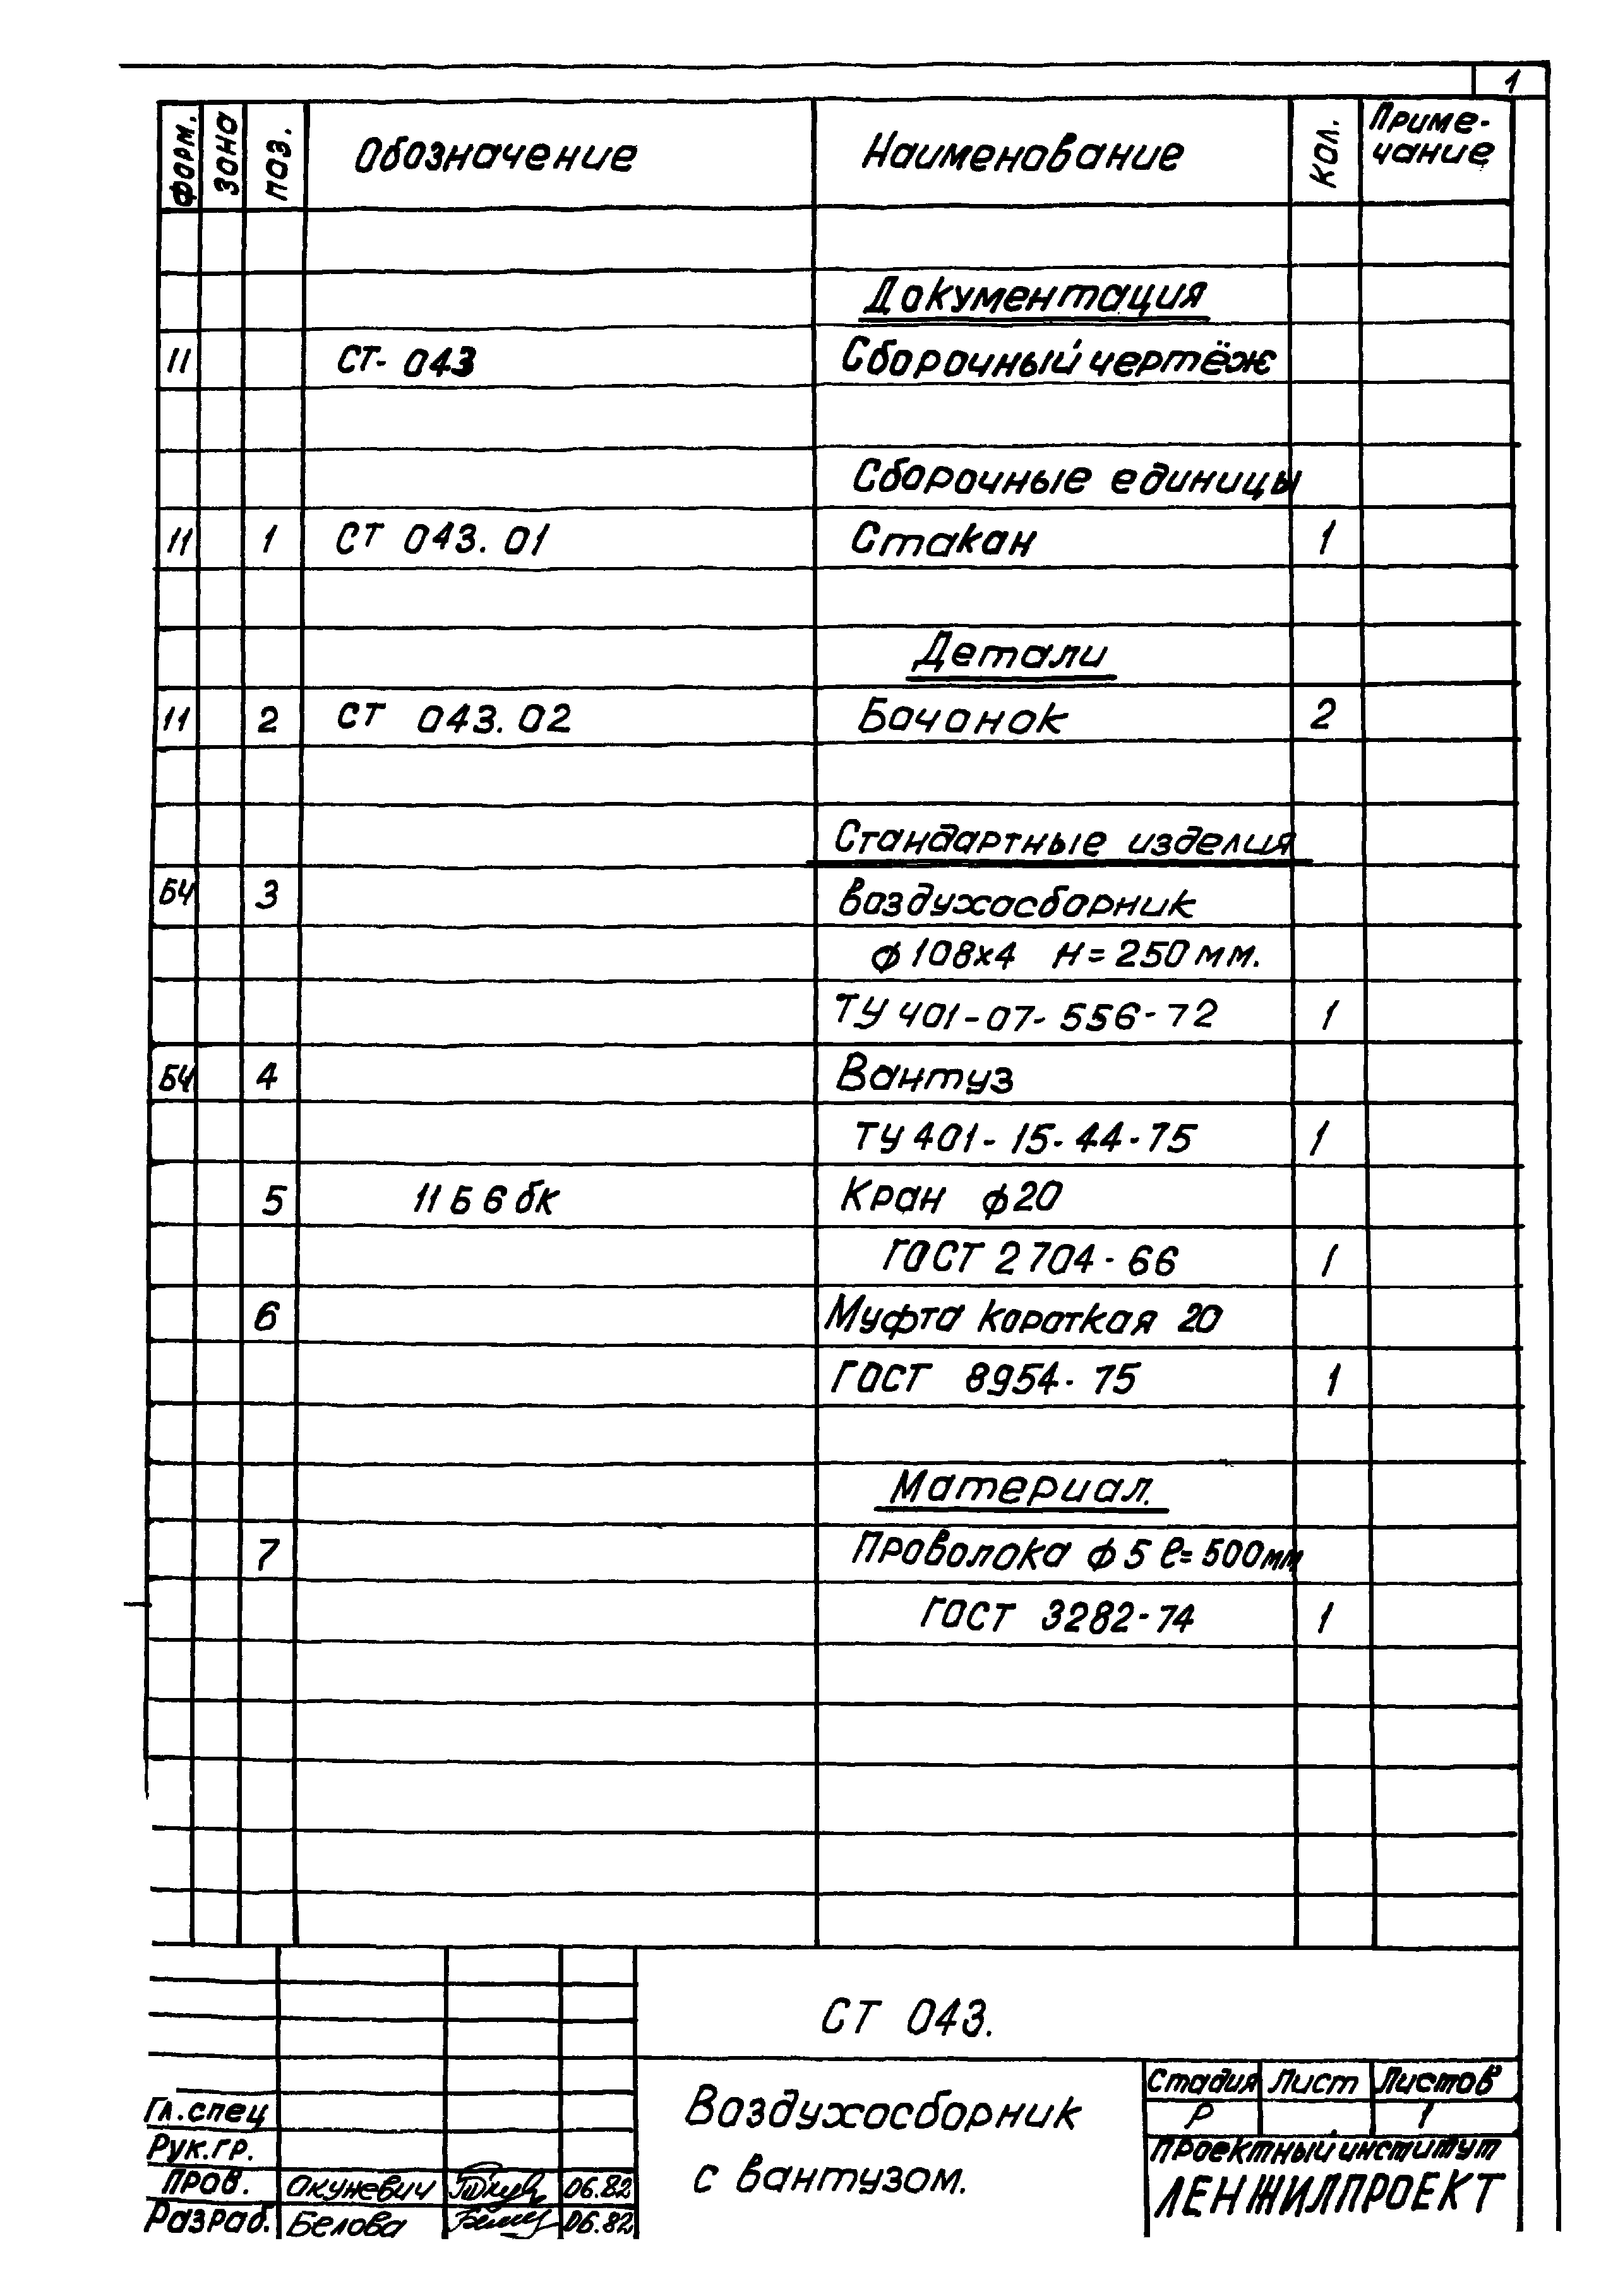 1
Форм. Зона Поз. Обозначение Наименование Кол. Приме-
чание
Документация
11 СТ- 043 Сборочный чертёж
Сборочные единицы
11 1 СТ 043.01 Стакан 1
Детали
11 2 СТ 043.02 Бачонок 2
Стандартные изделия
БЧ 3 Воздухосборник
ф 108х4 Н = 250 мм.
ТУ 401-07-556-72 1
БЧ 4 Вантуз
ТУ 401-15-44-75 1
5 11 Б 6 бк Кран ф 20
ГОСТ 2704-66 1
6 Муфта короткая 20
ГОСТ 8954-75 1
Материал.
7 Проволока ф 5 ℓ= 500мм
ГОСТ 3282-74 1
СТ 043.
Воздухосборник
с вантузом.
Стадия Лист Листов
Р 1
Проектный институт
ЛЕНЖИЛПРОЕКТ
Гл.спец
Рук.гр.
Пров. Окуневич 06.82
Разраб. Белова 06.82